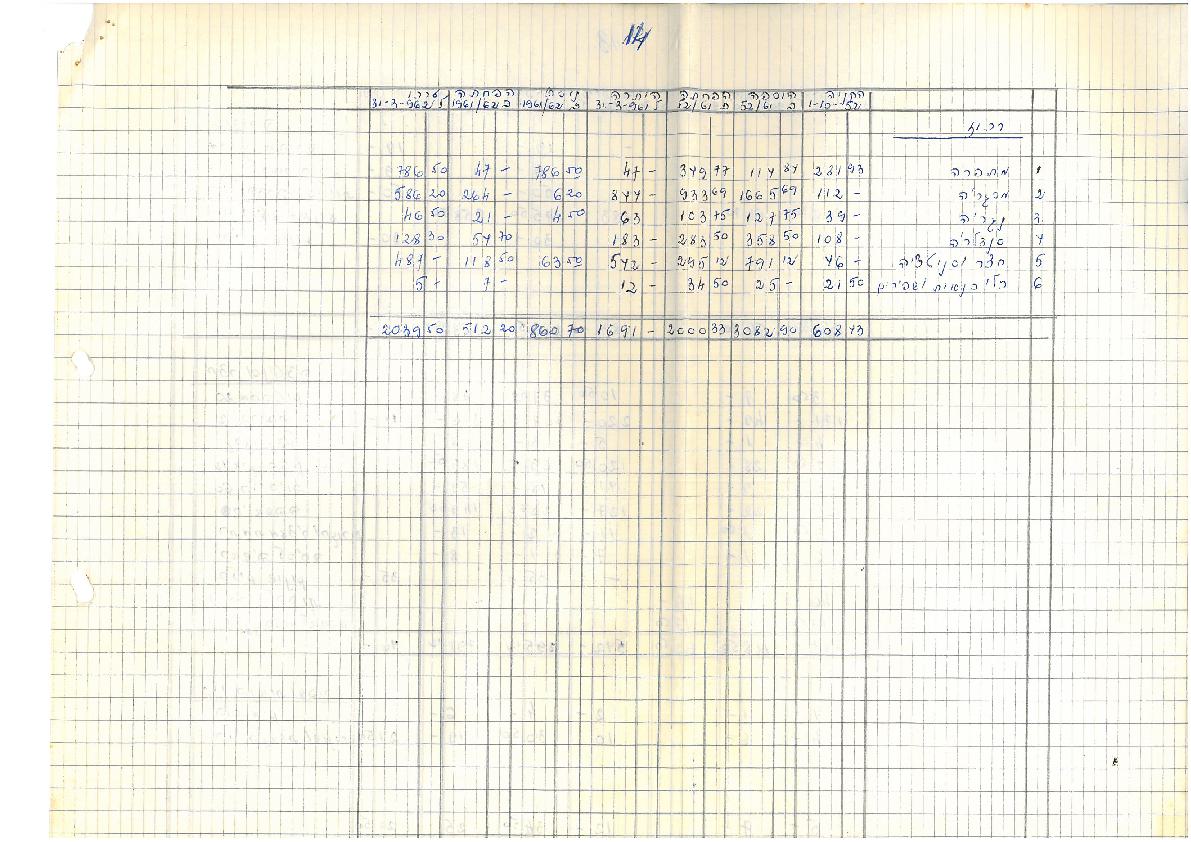 14
הקניה הוספה הפחתה היתרה נוסף הפחתה ערכו
1-10-52 52/61 ב 12/61 ב 31-3-961 ל 1961/62 ב 1961/62 ב 31-3-962 ל
1 מתפרה 281 93 114 84 349 77 47 - 786 50 47 - 786 50
2 מסגריה 112 - 1665 69 933 69 844 - 6 20 264 - 586 20
3 נגריה 39 - 127 75 103 75 63 4 50 21 - 46 50
4 סנדלריה 108 - 358 50 283 50 183 - 54 70 128 30
5 חצר וסניטציה 46 - 791 12 295 12 542 - 63 50 118 50 487 -
6 כלי 21 50 25 - 34 50 12 - 7 - 5 -
608 43 3082 90 2000 33 1691 - 860 70 512 20 2039 50